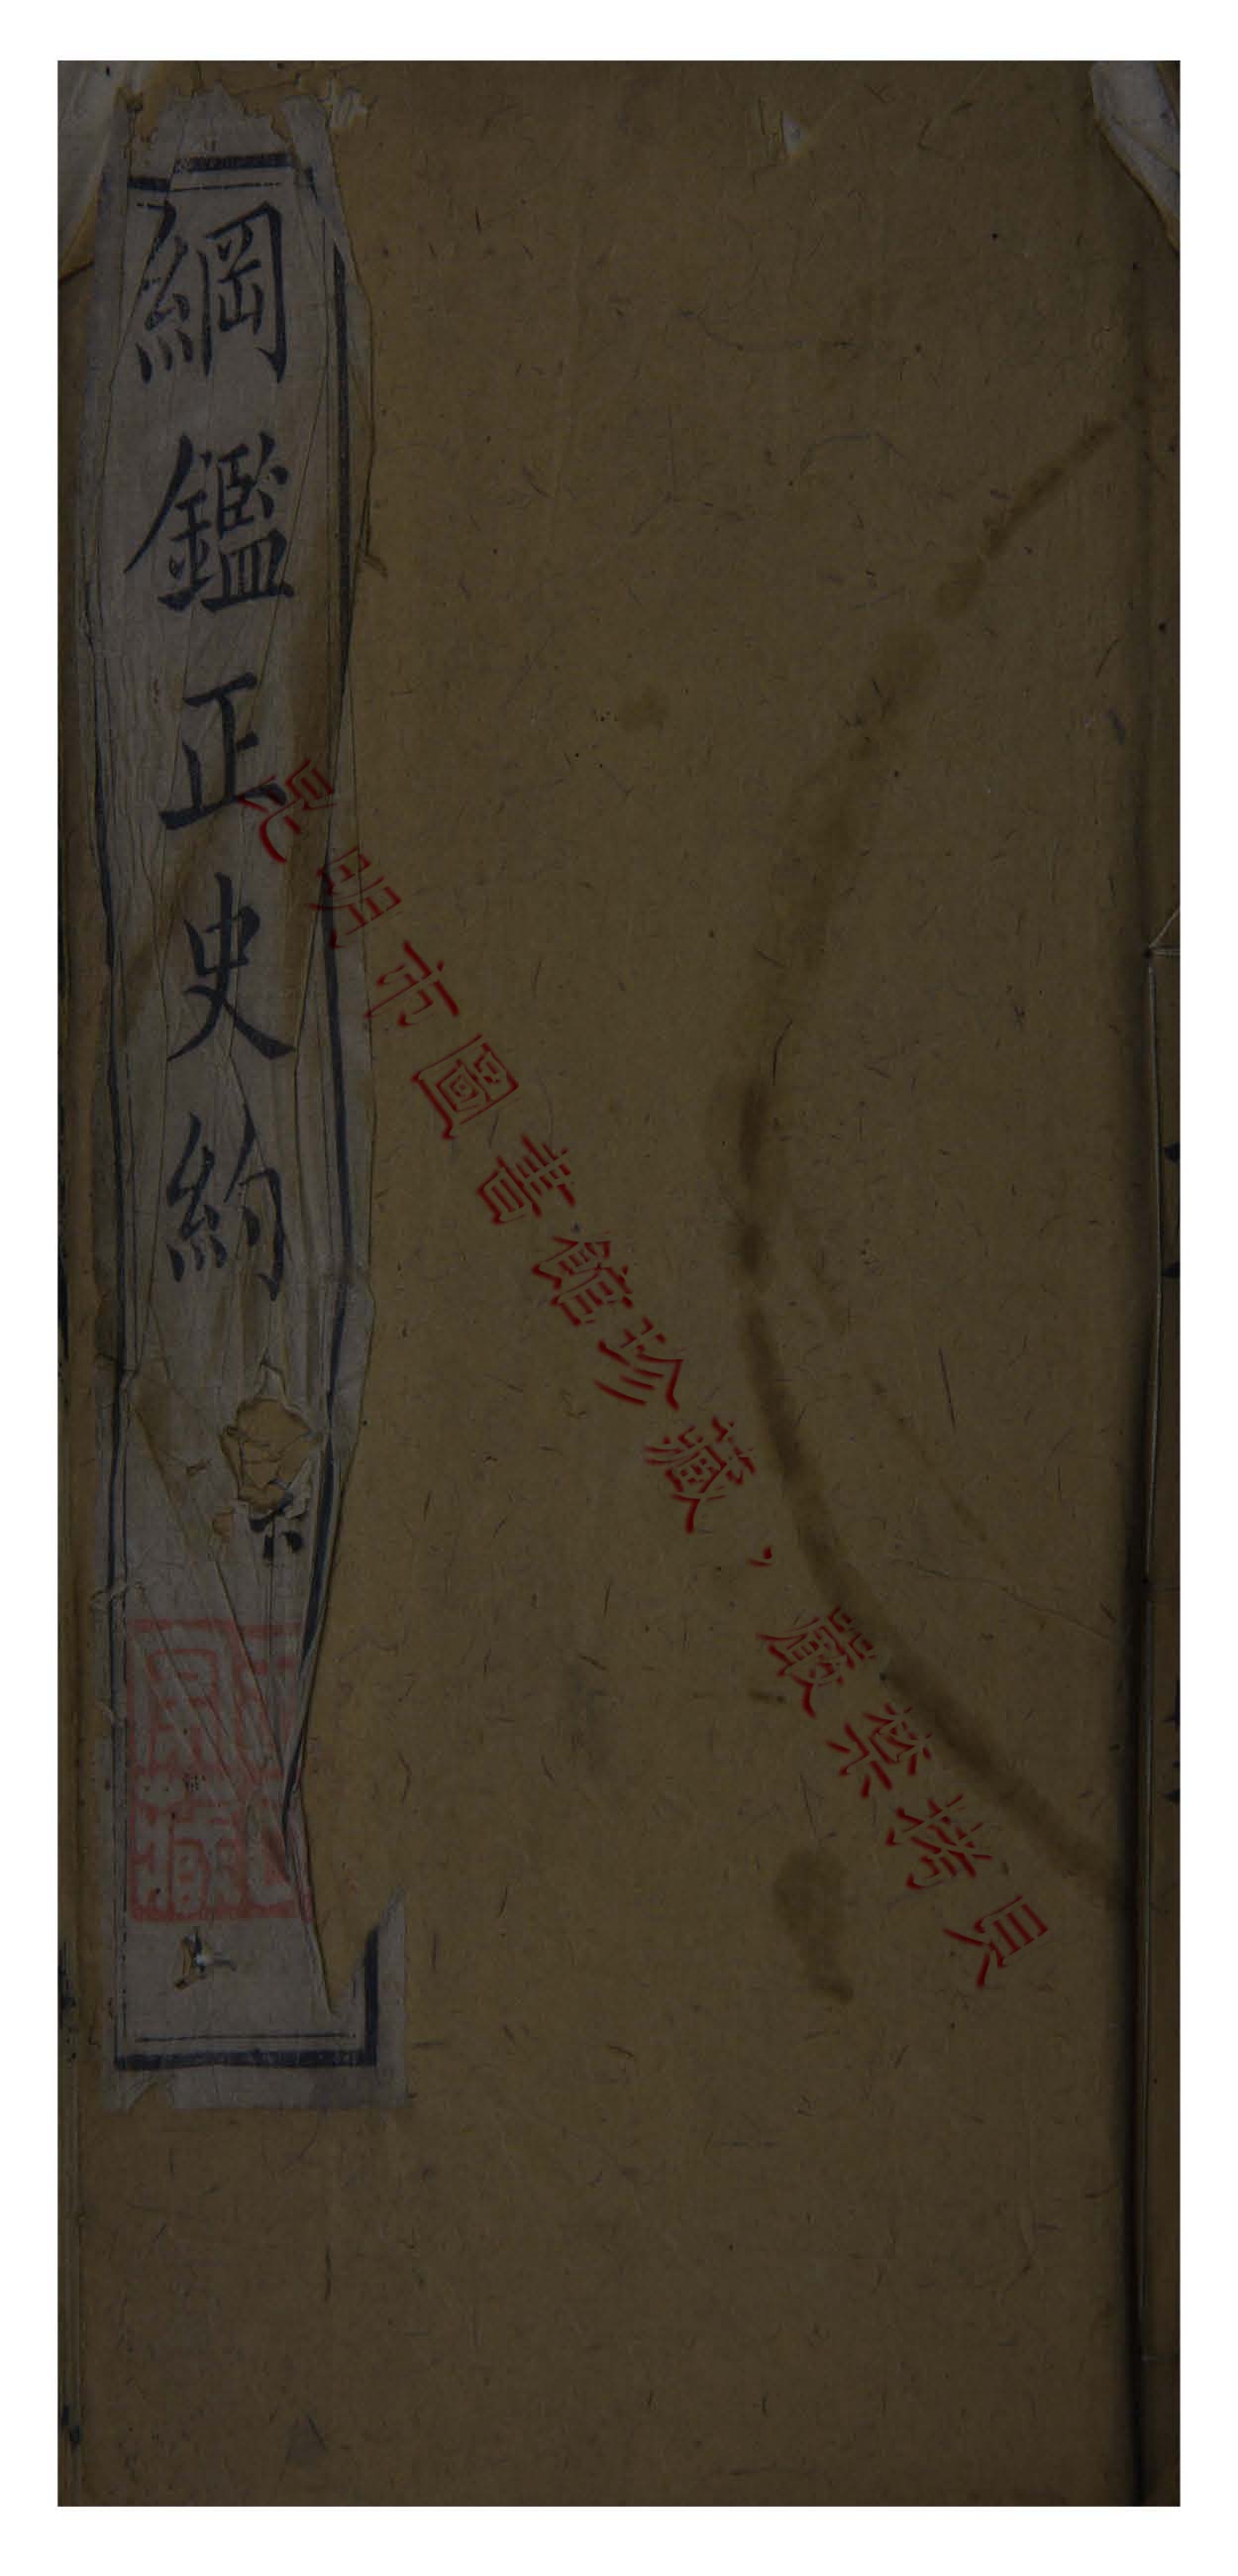 綱鑑正史約
昆明市圖書館珍藏，嚴禁拷貝